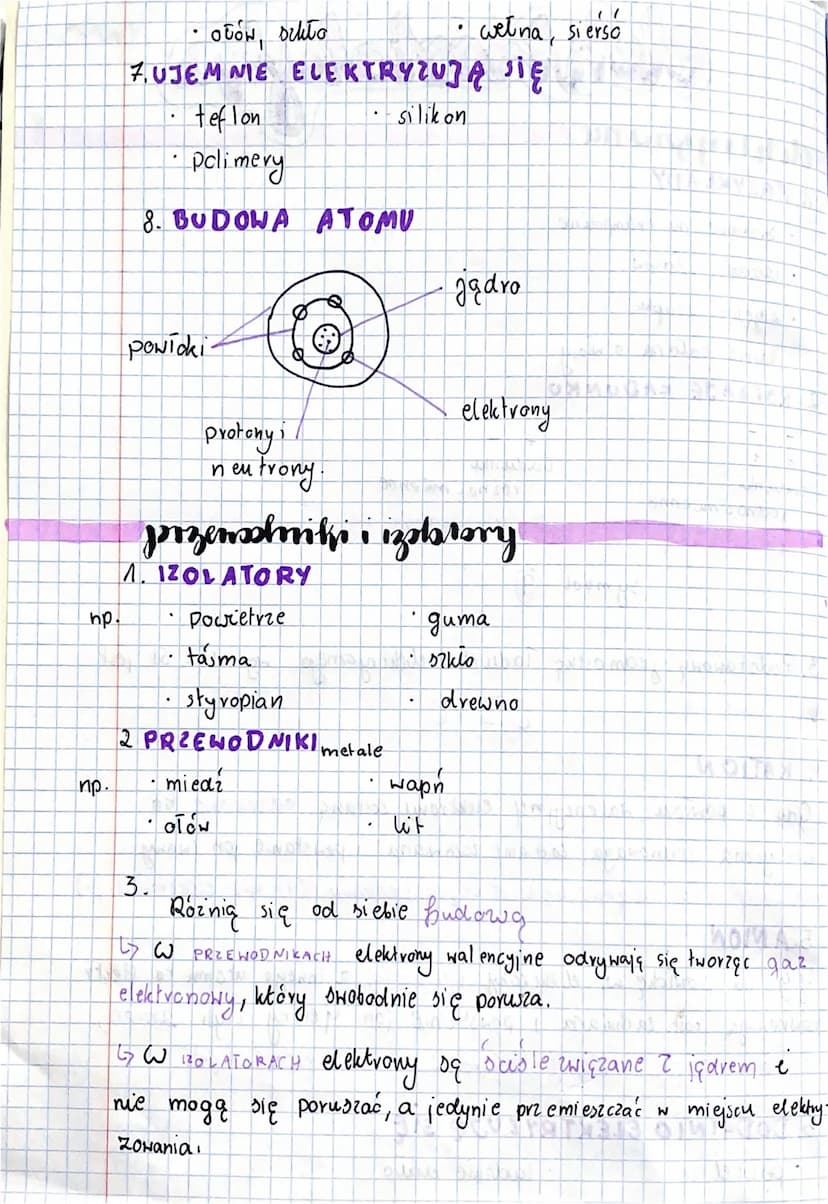 · ołów, szkło · wełna, sierść
7. UJEMNIE ELEKTRYZUJĄ SIĘ
· teflon · silikon
· polimery
8. BUDOWA ATOMU
jądro
powłoki
elektrony
protony i
neutrony.
przewodniki i izolatory
1. IZOLATORY
np. · powietrze · guma
· taśma · szkło
· styropian · drewno
2 PRZEWODNIKI metale
np. · miedź · wapń
· ołów · lit
3.
Różnią się od siebie budową
↳ W PRZEWODNIKACH elektrony walencyjne odrywają się tworząc gaz
elektronowy, który swobodnie się porusza.
↳ W IZOLATORACH elektrony są ściśle związane z jądrem i
nie mogą się poruszać, a jedynie przemieszczać w miejscu elektry-
zowania.